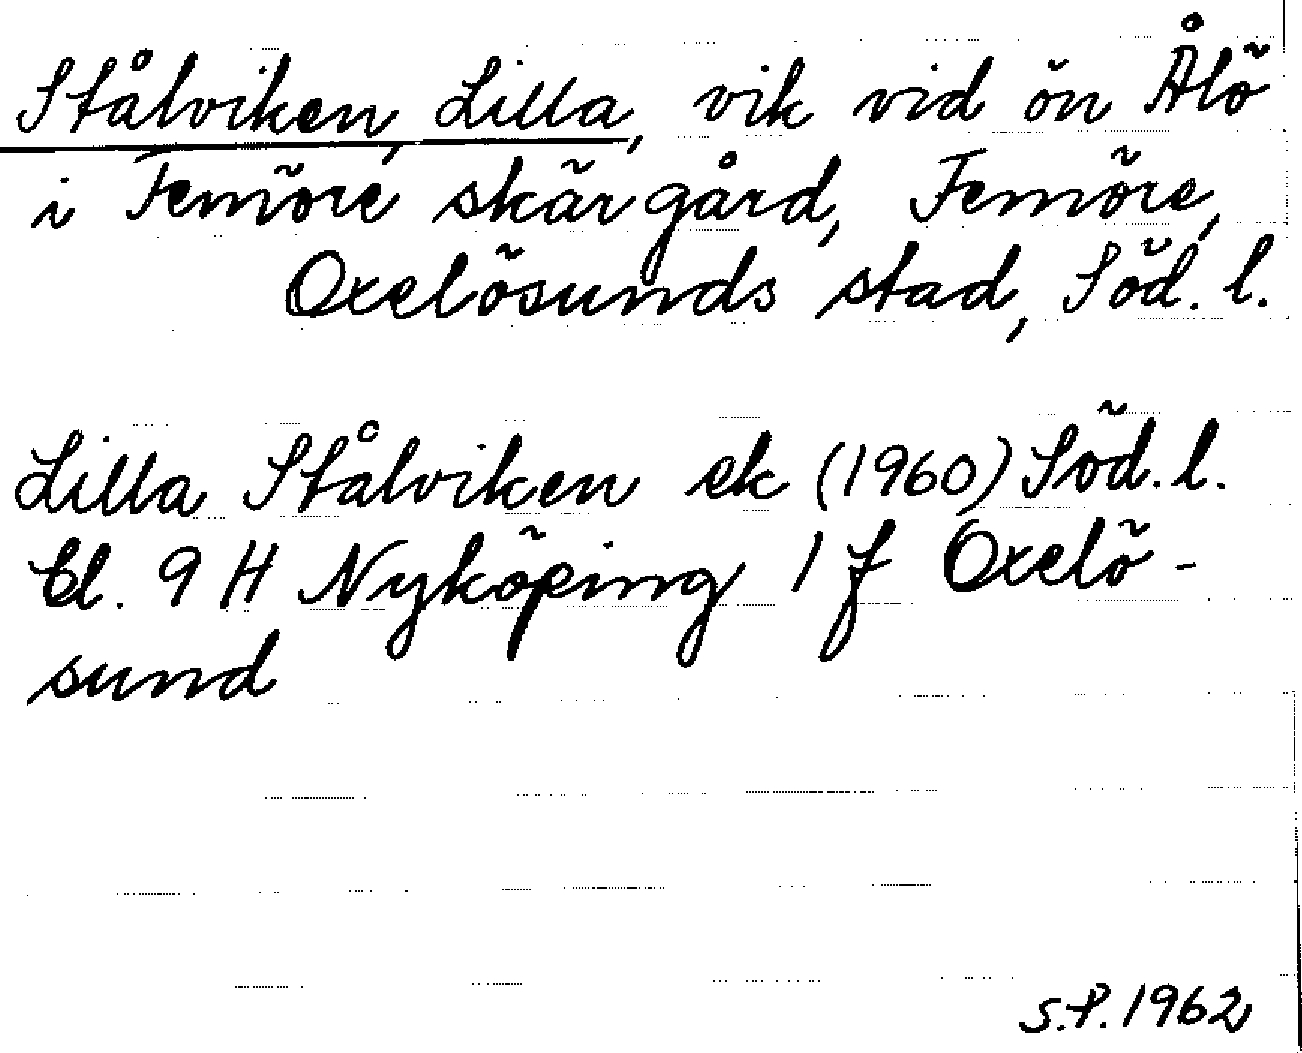 Stålviken, Lilla, vik vid ön Ålö
i Femöre skärgård, Femöre,
Oxelösunds stad, Söd. l.
Lilla Stålviken ek (1960) Söd. l.
Bl. 9 H Nyköping 1 f Oxelö-
sund
S.P. 1962